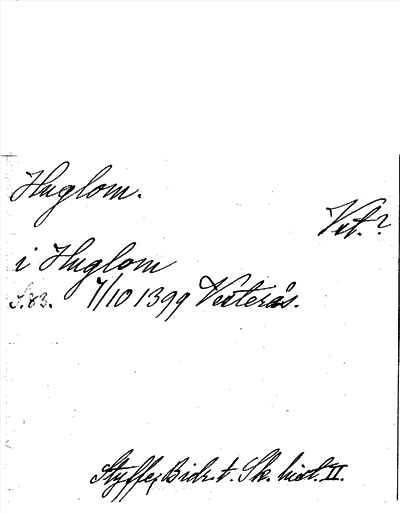 Huglom.
Vit.?
i Huglom
S. 83. 7/10 1399 Vesterås.
Styffe, Bidr. t. Sk. hist. II.